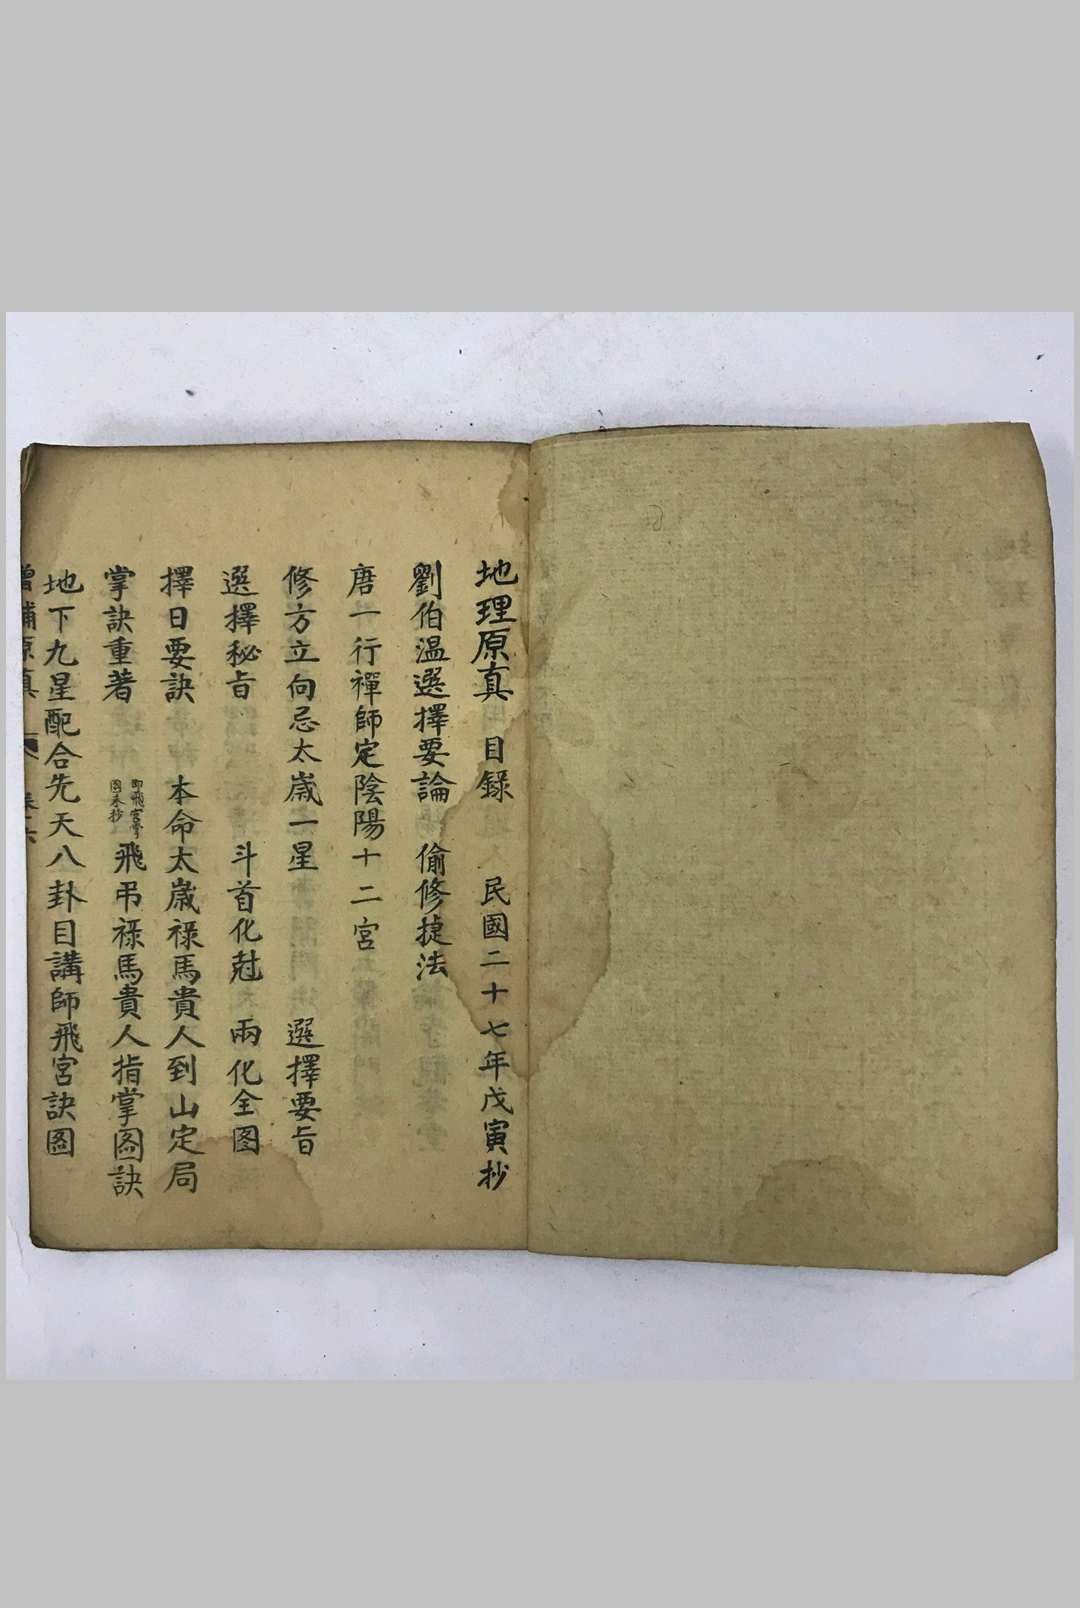 地理原真 目錄 民國二十七年戊寅抄
劉伯溫選擇要論 偷修捷法
唐一行禪師定陰陽十二宮
修方立向忌太歲一星 選擇要旨
選擇秘旨 斗首化尅 兩化全圖
擇日要訣 本命太歲祿馬貴人到山定局
掌訣重著 即飛宮掌圖未抄 飛吊祿馬貴人指掌圖訣
地下九星配合先天八卦目講師飛宮訣圖
增補原真 卷六